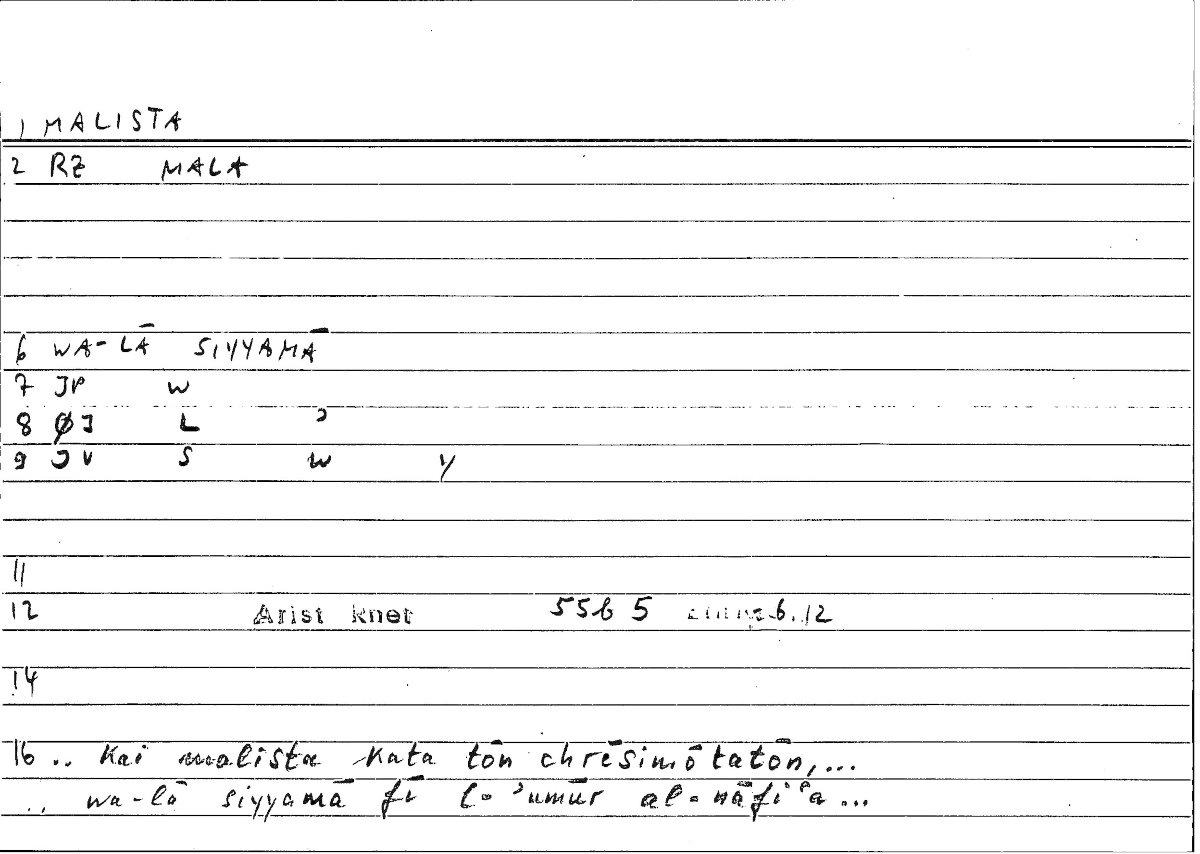 1 MALISTA
2 RZ MALA
6 WA-LĀ SIYYAMĀ
7 JP W
8 ØJ L ʾ
9 JV S W Y
11
12 Arist Rhet 55b 5 6.12
14
16 .. Kai malista kata tōn chrēsimōtatōn,...
.. wa-lā siyyamā fī l-ʾumūr al-nāfiʿa ...